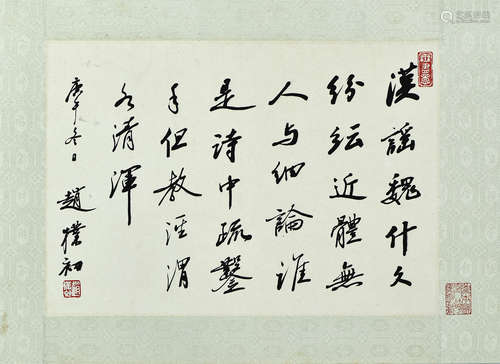 漢謠魏什久
紛紜近體無
人与細論誰
是詩中疏鑿
手但教涇渭
各清渾
庚午冬日 趙樸初